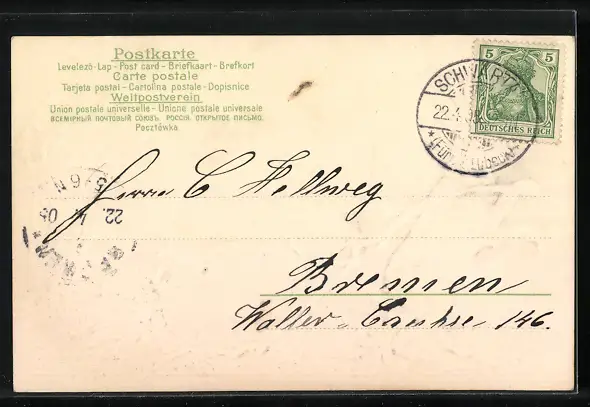 Postkarte
Levelező-Lap - Post card - Briefkaart - Brefkort
Carte postale
Tarjeta postal - Cartolina postale - Dopisnice
Weltpostverein
Union postale universelle - Unione postale universale
ВСЕМІРНЫЙ ПОЧТОВЫЙ СОЮЗЪ. РОССІЯ. ОТКРЫТОЕ ПИСЬМО.
Pocztówka
5 5
DEUTSCHES REICH
22.4.
22. 4. 05
5-6N
Herrn C Hellweg
Bremen
Waller 146.